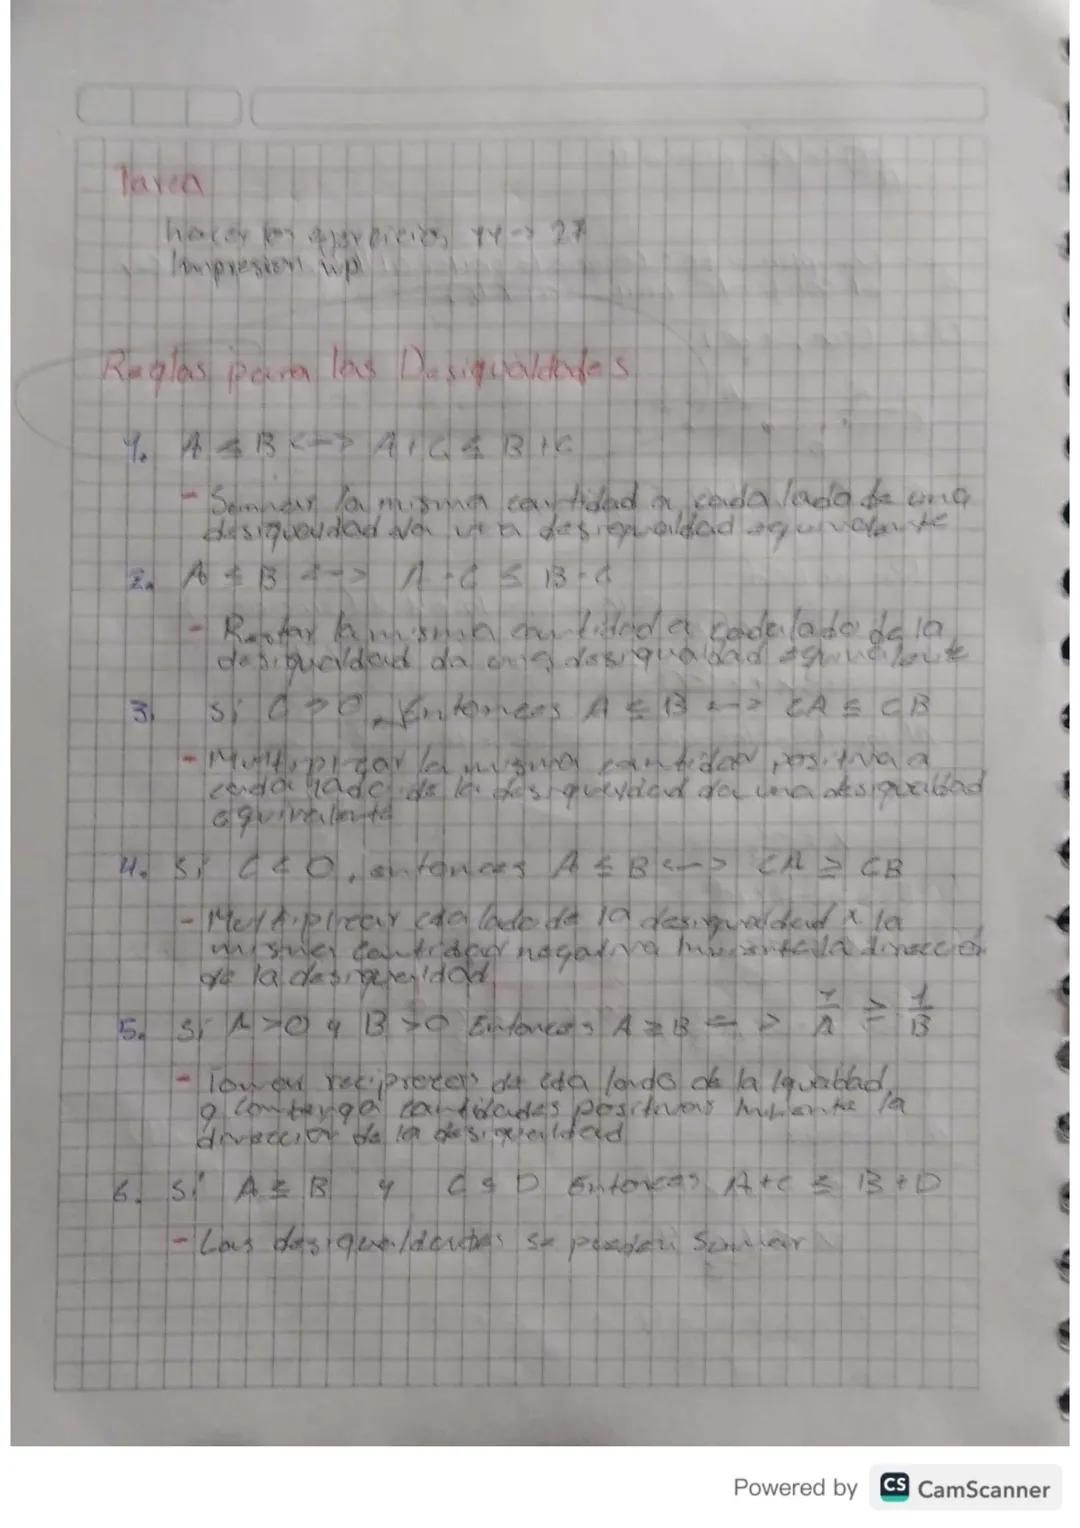 Tarea
hacer los ejercicios 14 → 27
Impresion wp
Reglas para las Desigualdades
1. A ≤ B <-> A+C ≤ B+C
- Sumar la misma cantidad a cada lado de una
desigualdad da una desigualdad equivalente
2. A ≤ B <-> A-C ≤ B-C
- Restar la misma cantidad a cada lado de la
desigualdad da una desigualdad equivalente
3. Si C > 0, Entonces A ≤ B <-> CA ≤ CB
- Multiplicar la misma cantidad positiva a
cada lado de la desigualdad da una desigualdad
equivalente
4. Si C < 0, entonces A ≤ B <-> CA ≥ CB
- Multiplicar cda lado de la desigualdad x la
misma cantidad negativa invierte la dirección
de la desigualdad
5. Si A > 0 y B > 0 Entonces A ≥ B <=> 1/A ≥ 1/B
- Tomar reciprocos de cda lado de la igualdad,
q contenga cantidades positivas invierte la
direccion de la desigualdad
6. Si A ≤ B y C ≤ D Entonces A+C ≤ B+D
- Las desigualdades se pueden Sumar
Powered by CS CamScanner